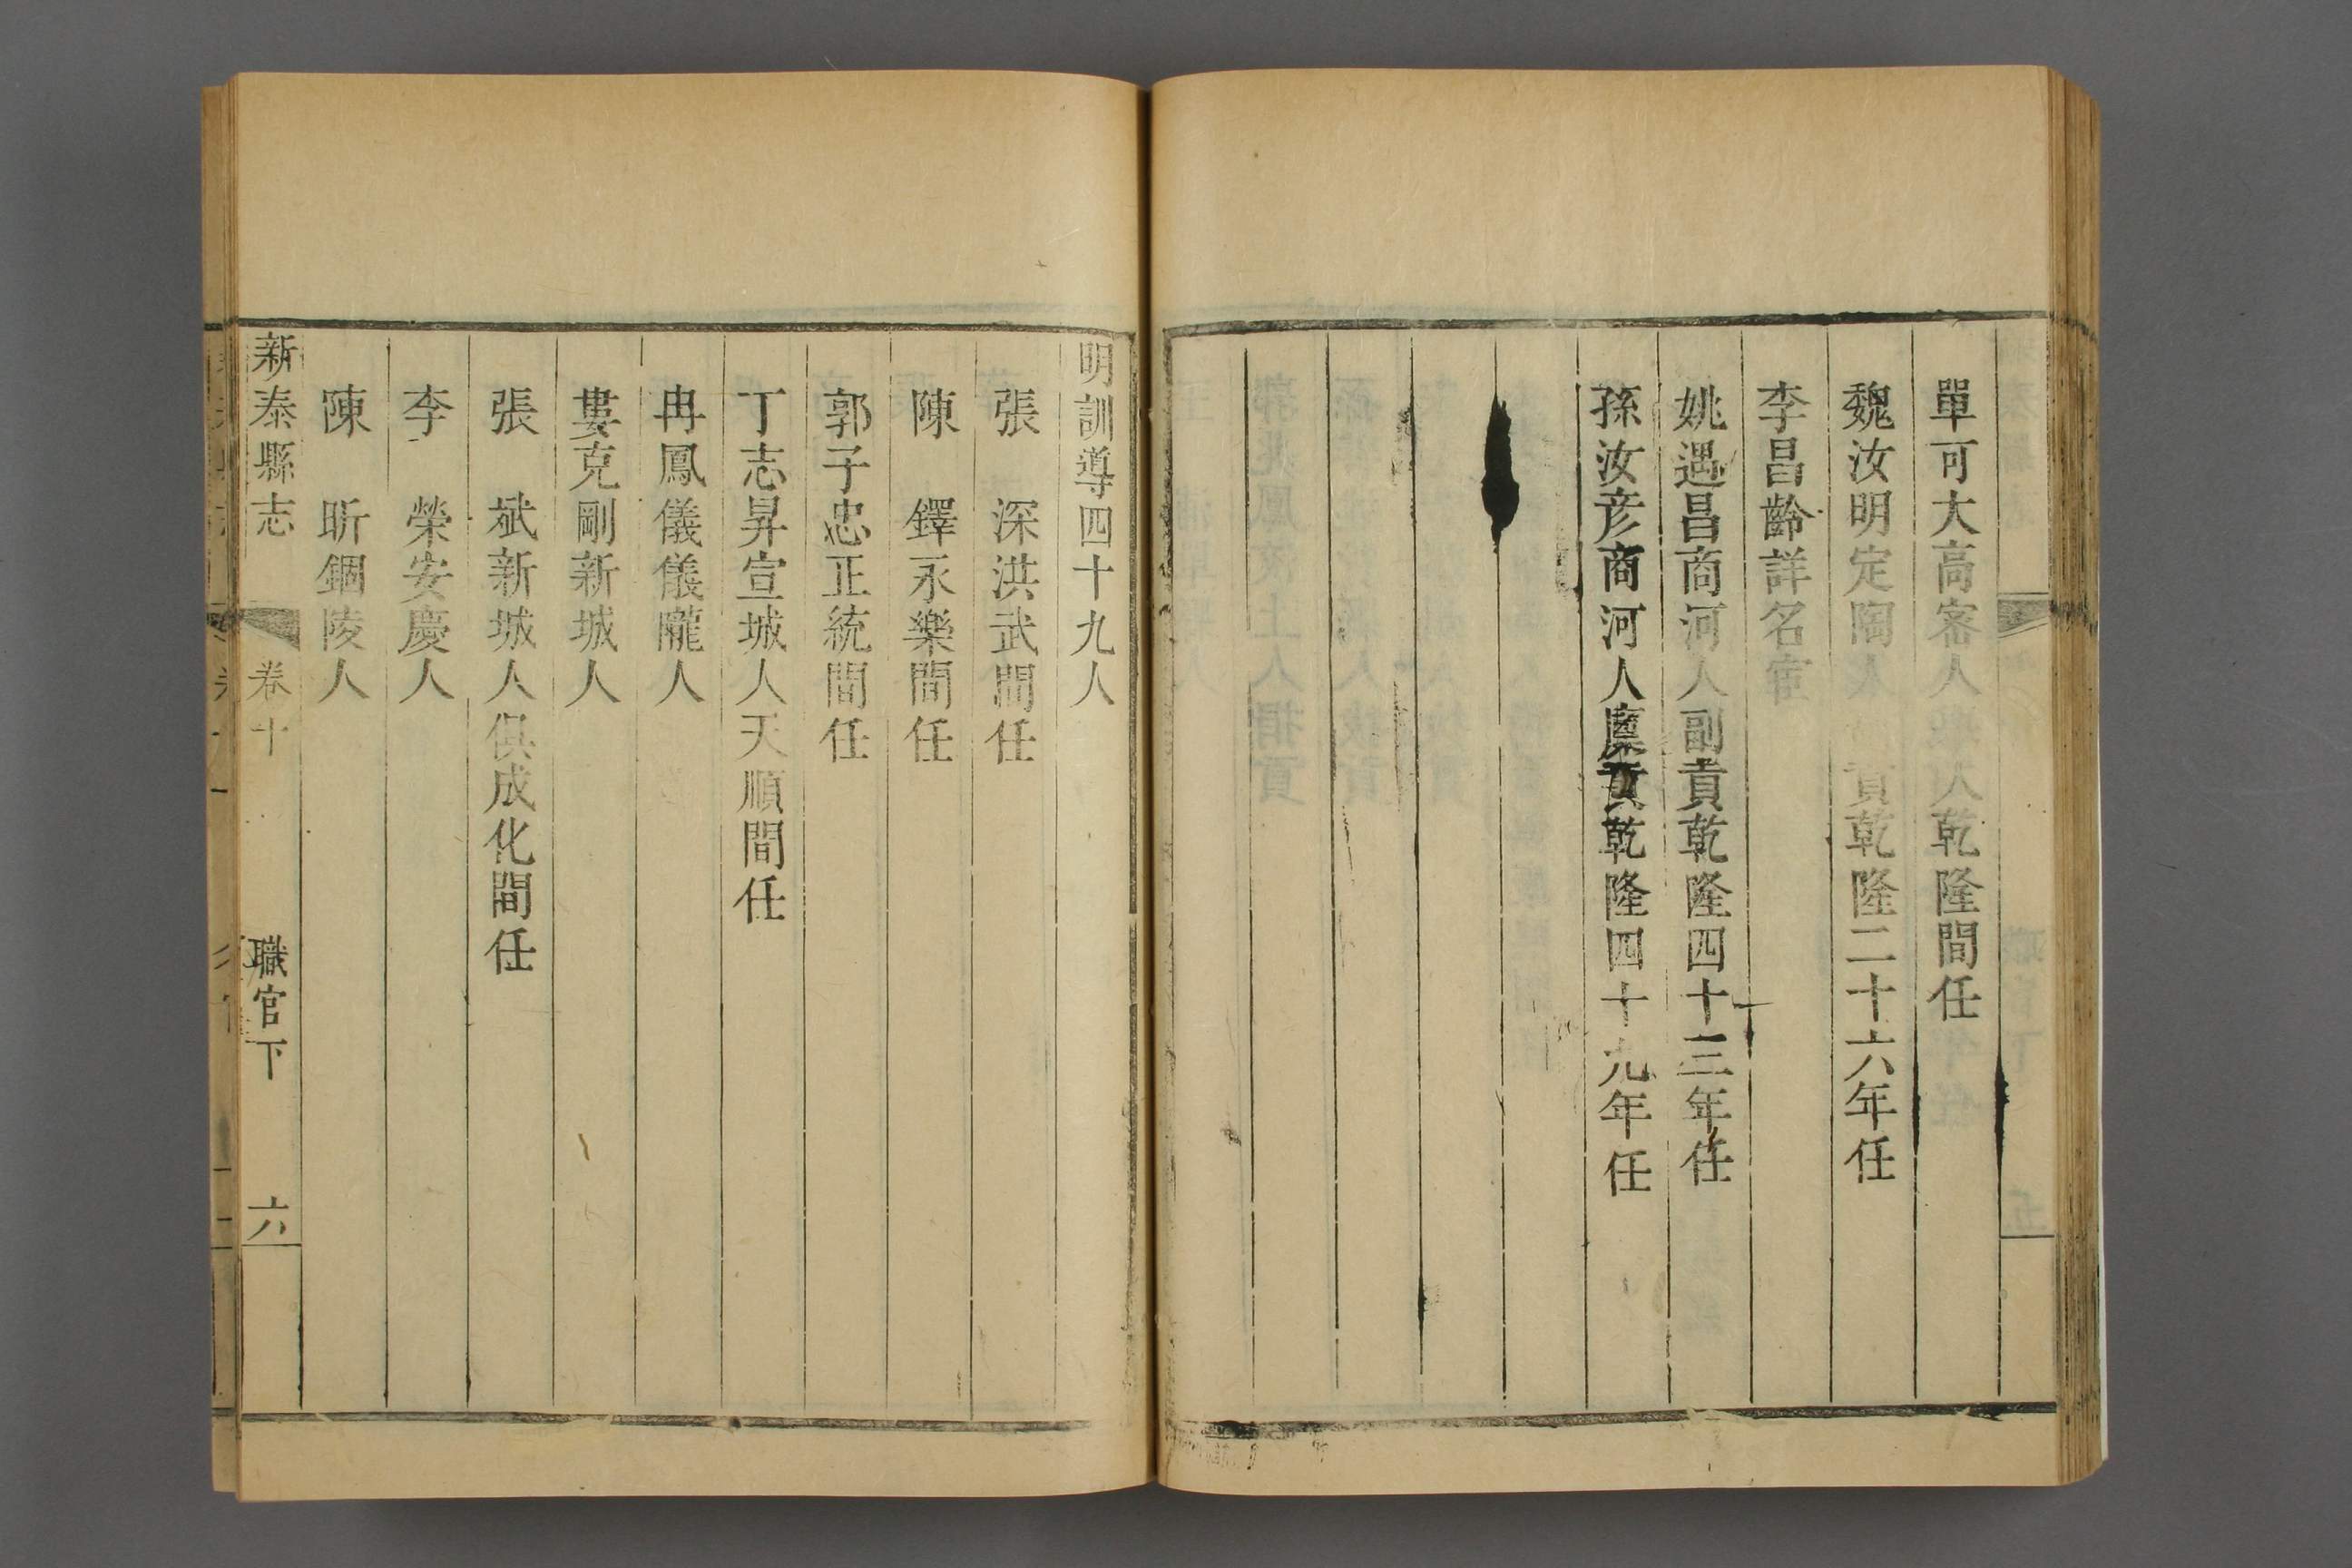 單可大高密人 人乾隆間任
魏汝明定陶人 貢乾隆二十六年任
李昌齡詳名宦
姚遇昌商河人副貢乾隆四十三年任
孫汝彥商河人廩貢乾隆四十九年任
明訓導四十九人
張 深洪武間任
陳 鐸永樂間任
郭子忠正統間任
丁志昇宣城人天順間任
冉鳳儀儀隴人
婁克剛新城人
張 斌新城人俱成化間任
李 榮安慶人
陳 昕錮陵人
新泰縣志 卷十 職官下 六